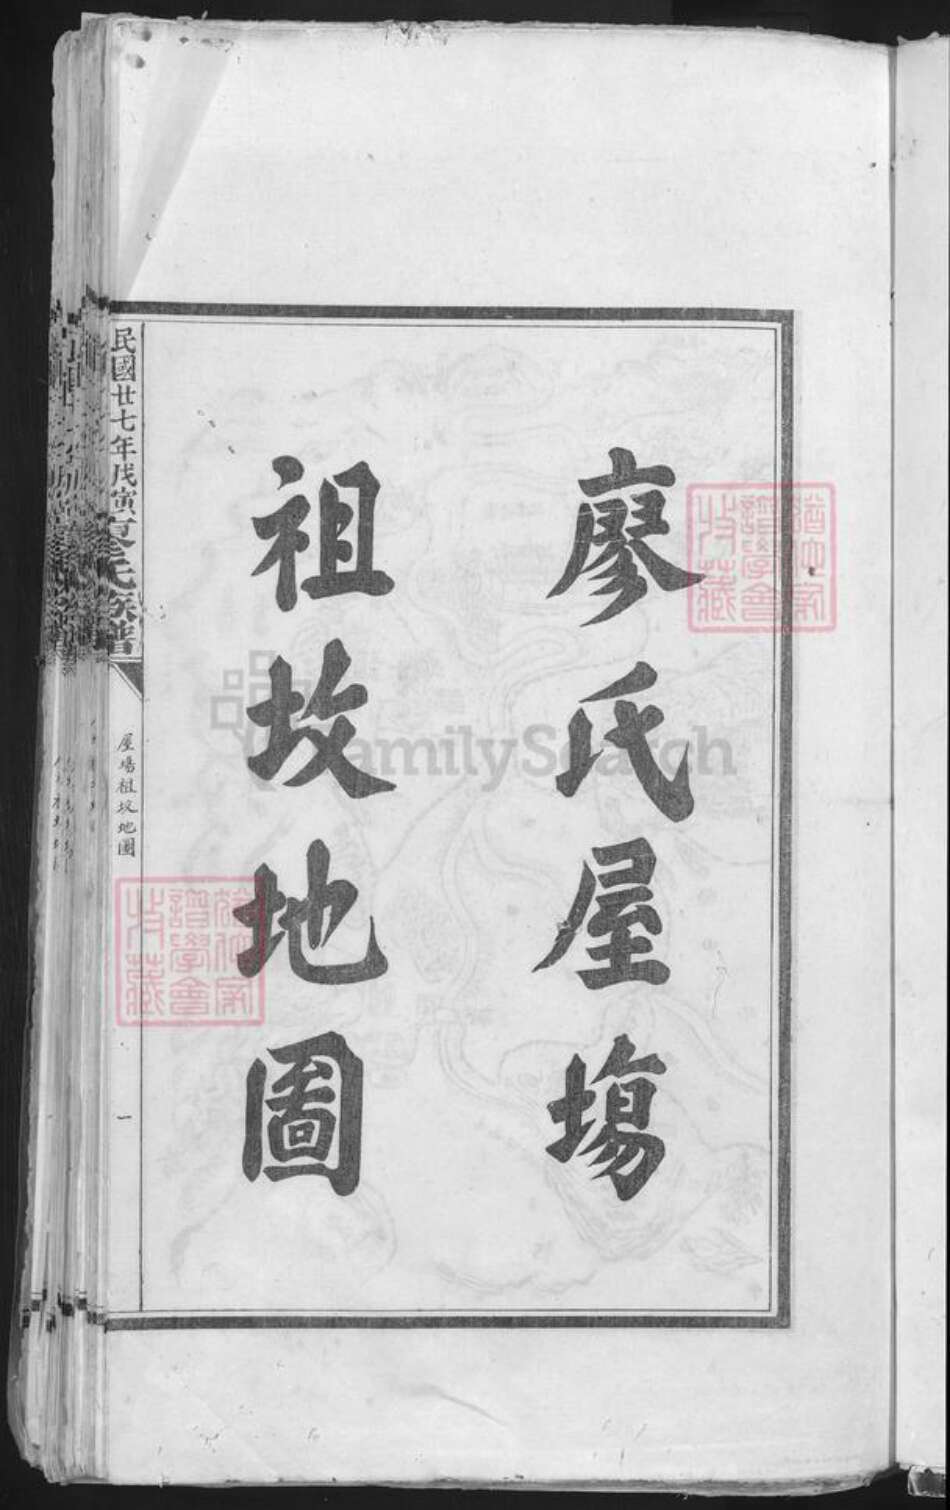 廖氏屋場
祖坟地圖
民國廿七年戊寅夏
氏族譜
屋場祖坟地圖
一
譜學會
收藏
譜學會
收藏
FamilySearch